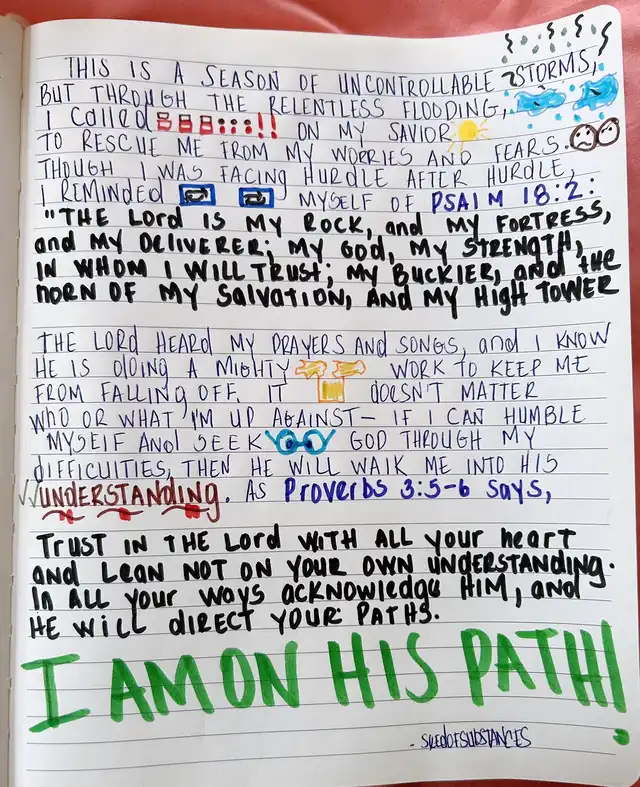 THIS IS A SEASON OF UNCONTROLLABLE STORMS,
BUT THROUGH THE RELENTLESS FLOODING,
I called !! ON MY SAVIOR
TO RESCUE ME FROM MY WORRIES AND FEARS.
THOUGH I WAS FACING HURDLE AFTER HURDLE,
I REMINDED MYSELF OF PSALM 18:2:
"THE LORD IS MY ROCK, and MY FORTRESS,
and MY DELIVERER; MY GOD, MY STRENGTH,
IN WHOM I WILL TRUST; MY BUCKLER, and the
HORN OF MY SALVATION, AND MY HIGH TOWER
THE LORD HEARD MY PRAYERS AND SONGS, and I KNOW
HE IS dOING A MIGHTY WORK TO KEEP ME
FROM FALLING OFF. IT dOESN'T MATTER
WHO OR WHAT I'M UP AGAINST— IF I CAN HUMBLE
MYSELF And SEEK GOD THROUGH MY
dIFFICULTIES, THEN HE WILL WALK ME INTO HIS
UNDERSTANdING. AS Proverbs 3:5-6 says,
TRUST IN THE LORD WITH ALL your heart
AND LEAN NOT ON YOUR OWN UNDERSTANDING.
In ALL your ways acknowledge HIM, and
HE WILL dIRECT YOUR PATHS.
I AM ON HIS PATH!
- SKEdOFSUBSTANCES